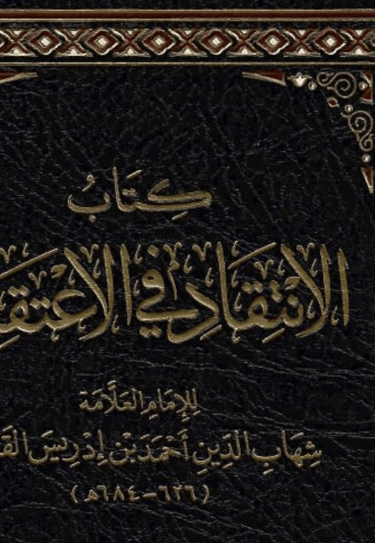 كِتَابُ
الانْتِقَادِ فِي الاعْتِقَ
لِلإِمَامِ العَلَّامَة
شِهَابِ الدِّينِ أَحْمَدَ بْنِ إِدْرِيسَ القَ
(٦٢٦-٦٨٤هـ)